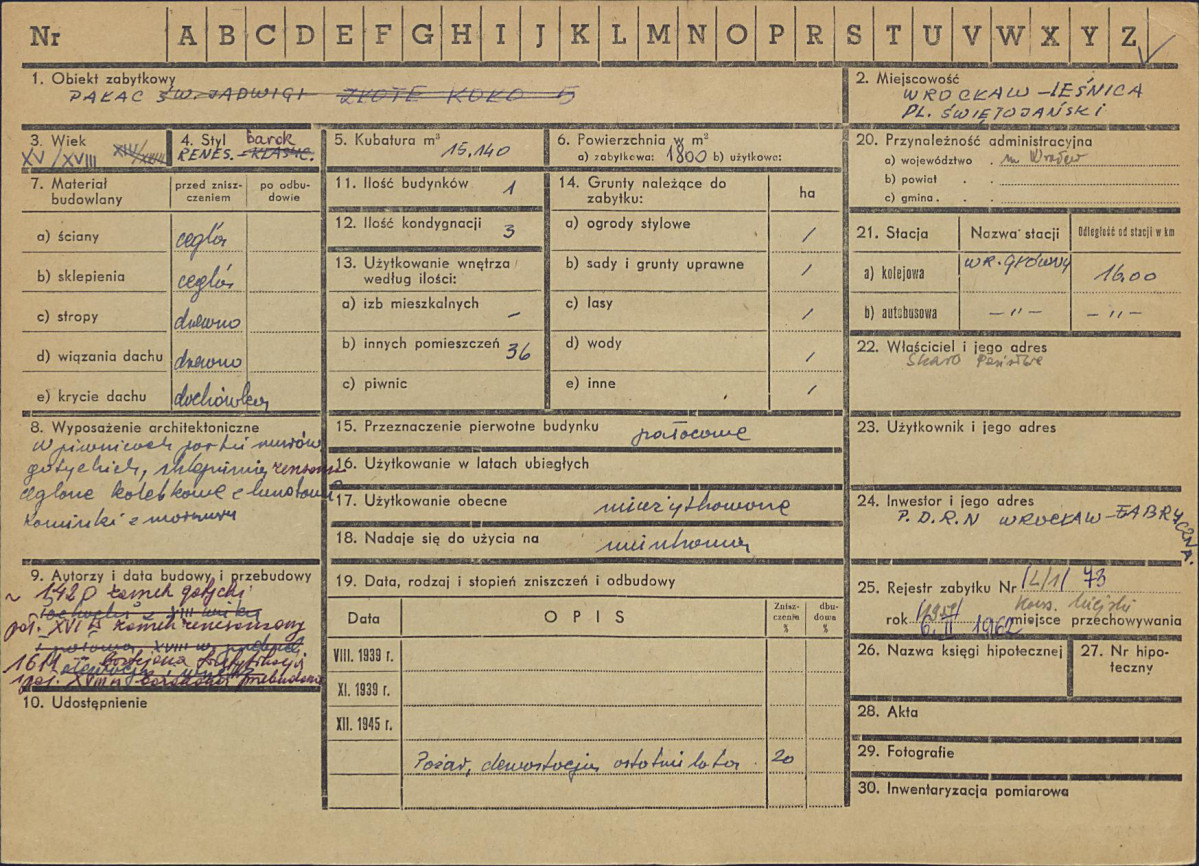 Nr A B C D E F G H I J K L M N O P R S T U V W X Y Z
1. Obiekt zabytkowy
PAŁAC ŚW. JADWIGI ZŁOTE KOŁO 5
2. Miejscowość
WROCŁAW – LEŚNICA
PL. ŚWIĘTOJAŃSKI
3. Wiek
XV/XVIII XIII/XVIII
4. Styl barok
RENES. – KLASYC.
5. Kubatura m³
15.140
6. Powierzchnia w m²
a) zabytkowa: 1800 b) użytkowe:
7. Materiał budowlany
przed zniszczeniem
po odbudowie
a) ściany cegła
b) sklepienia cegła
c) stropy drewno
d) wiązania dachu drewno
e) krycie dachu dachówka
8. Wyposażenie architektoniczne
W piwnicach partie murów
gotyckich, sklepienia renesans
ceglane kolebkowe z lunetami
kominki z marmuru
9. Autorzy i data budowy i przebudowy
~ 1420 zamek gotycki
poł. XVI w zamek renesansowy
1 połowa XVIII w
poł. XVIII w barokowa przebudowa
10. Udostępnienie
11. Ilość budynków 1
12. Ilość kondygnacji 3
13. Użytkowanie wnętrza
według ilości:
a) izb mieszkalnych –
b) innych pomieszczeń 36
c) piwnic
14. Grunty należące do
zabytku:
ha
a) ogrody stylowe /
b) sady i grunty uprawne /
c) lasy /
d) wody /
e) inne /
15. Przeznaczenie pierwotne budynku pałacowe
16. Użytkowanie w latach ubiegłych
17. Użytkowanie obecne nieużytkowane
18. Nadaje się do użycia na
19. Data, rodzaj i stopień zniszczeń i odbudowy
Data
OPIS
Zniszczenie %
dbudowa %
VIII. 1939 r.
XI. 1939 r.
XII. 1945 r.
Pożar, dewastacja ostatnie lata. 20
20. Przynależność administracyjna
a) województwo . m. Wrocław
b) powiat . .
c) gmina . . .
21. Stacja
Nazwa stacji
Odległość od stacji w km
a) kolejowa WR. GŁÓWNY 16.00
b) autobusowa – " – – " –
22. Właściciel i jego adres
Skarb Państwa
23. Użytkownik i jego adres
24. Inwestor i jego adres
P.D.R.N WROCŁAW – FABRYCZNA.
25. Rejestr zabytku Nr /L/1/ 73
Kons. Miejski
rok 6. II 1962 miejsce przechowywania
26. Nazwa księgi hipotecznej
27. Nr hipoteczny
28. Akta
29. Fotografie
30. Inwentaryzacja pomiarowa